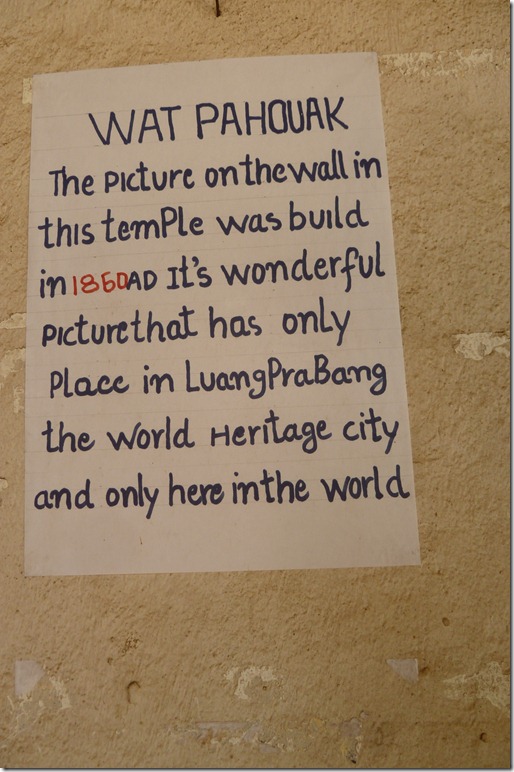 WAT PAHOUAK
The picture on the wall in
this temple was build
in 1860AD It's wonderful
picture that has only
Place in LuangPraBang
the world Heritage city
and only here in the world